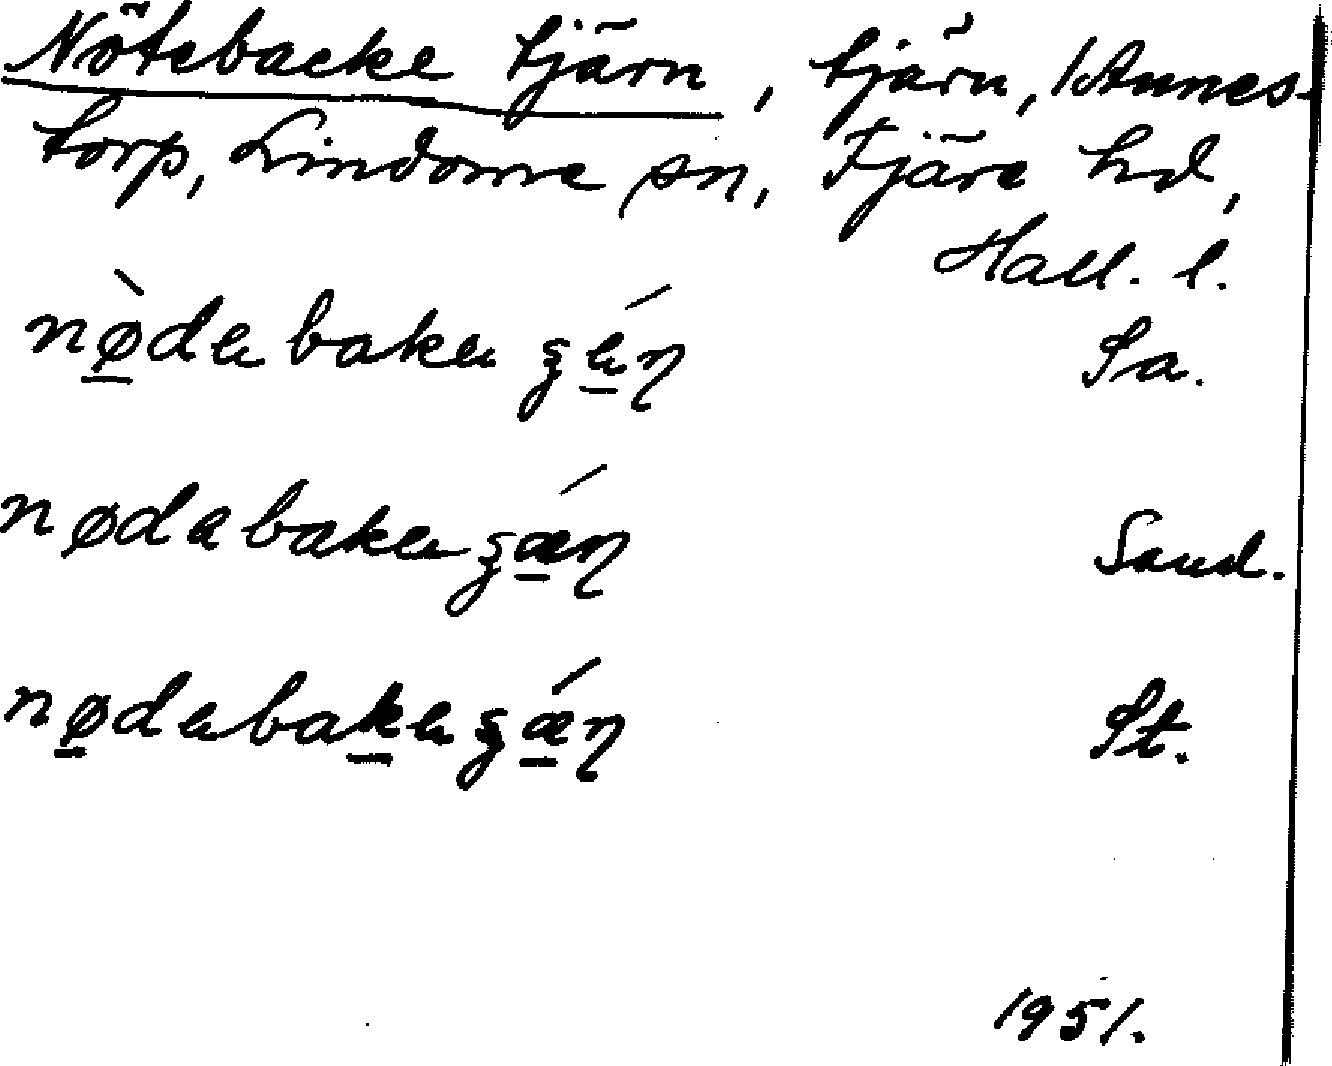 Nötebacke tjärn, tjärn, Annes-
torp, Lindome sn, Fjäre hd,
Hall. l.
nø̀dɘ bakɘ ʂɘ́ɳ Sa.
nødabakɘʂǽɳ Sand.
nødɘbakɘʂǽɳ St.
1951.